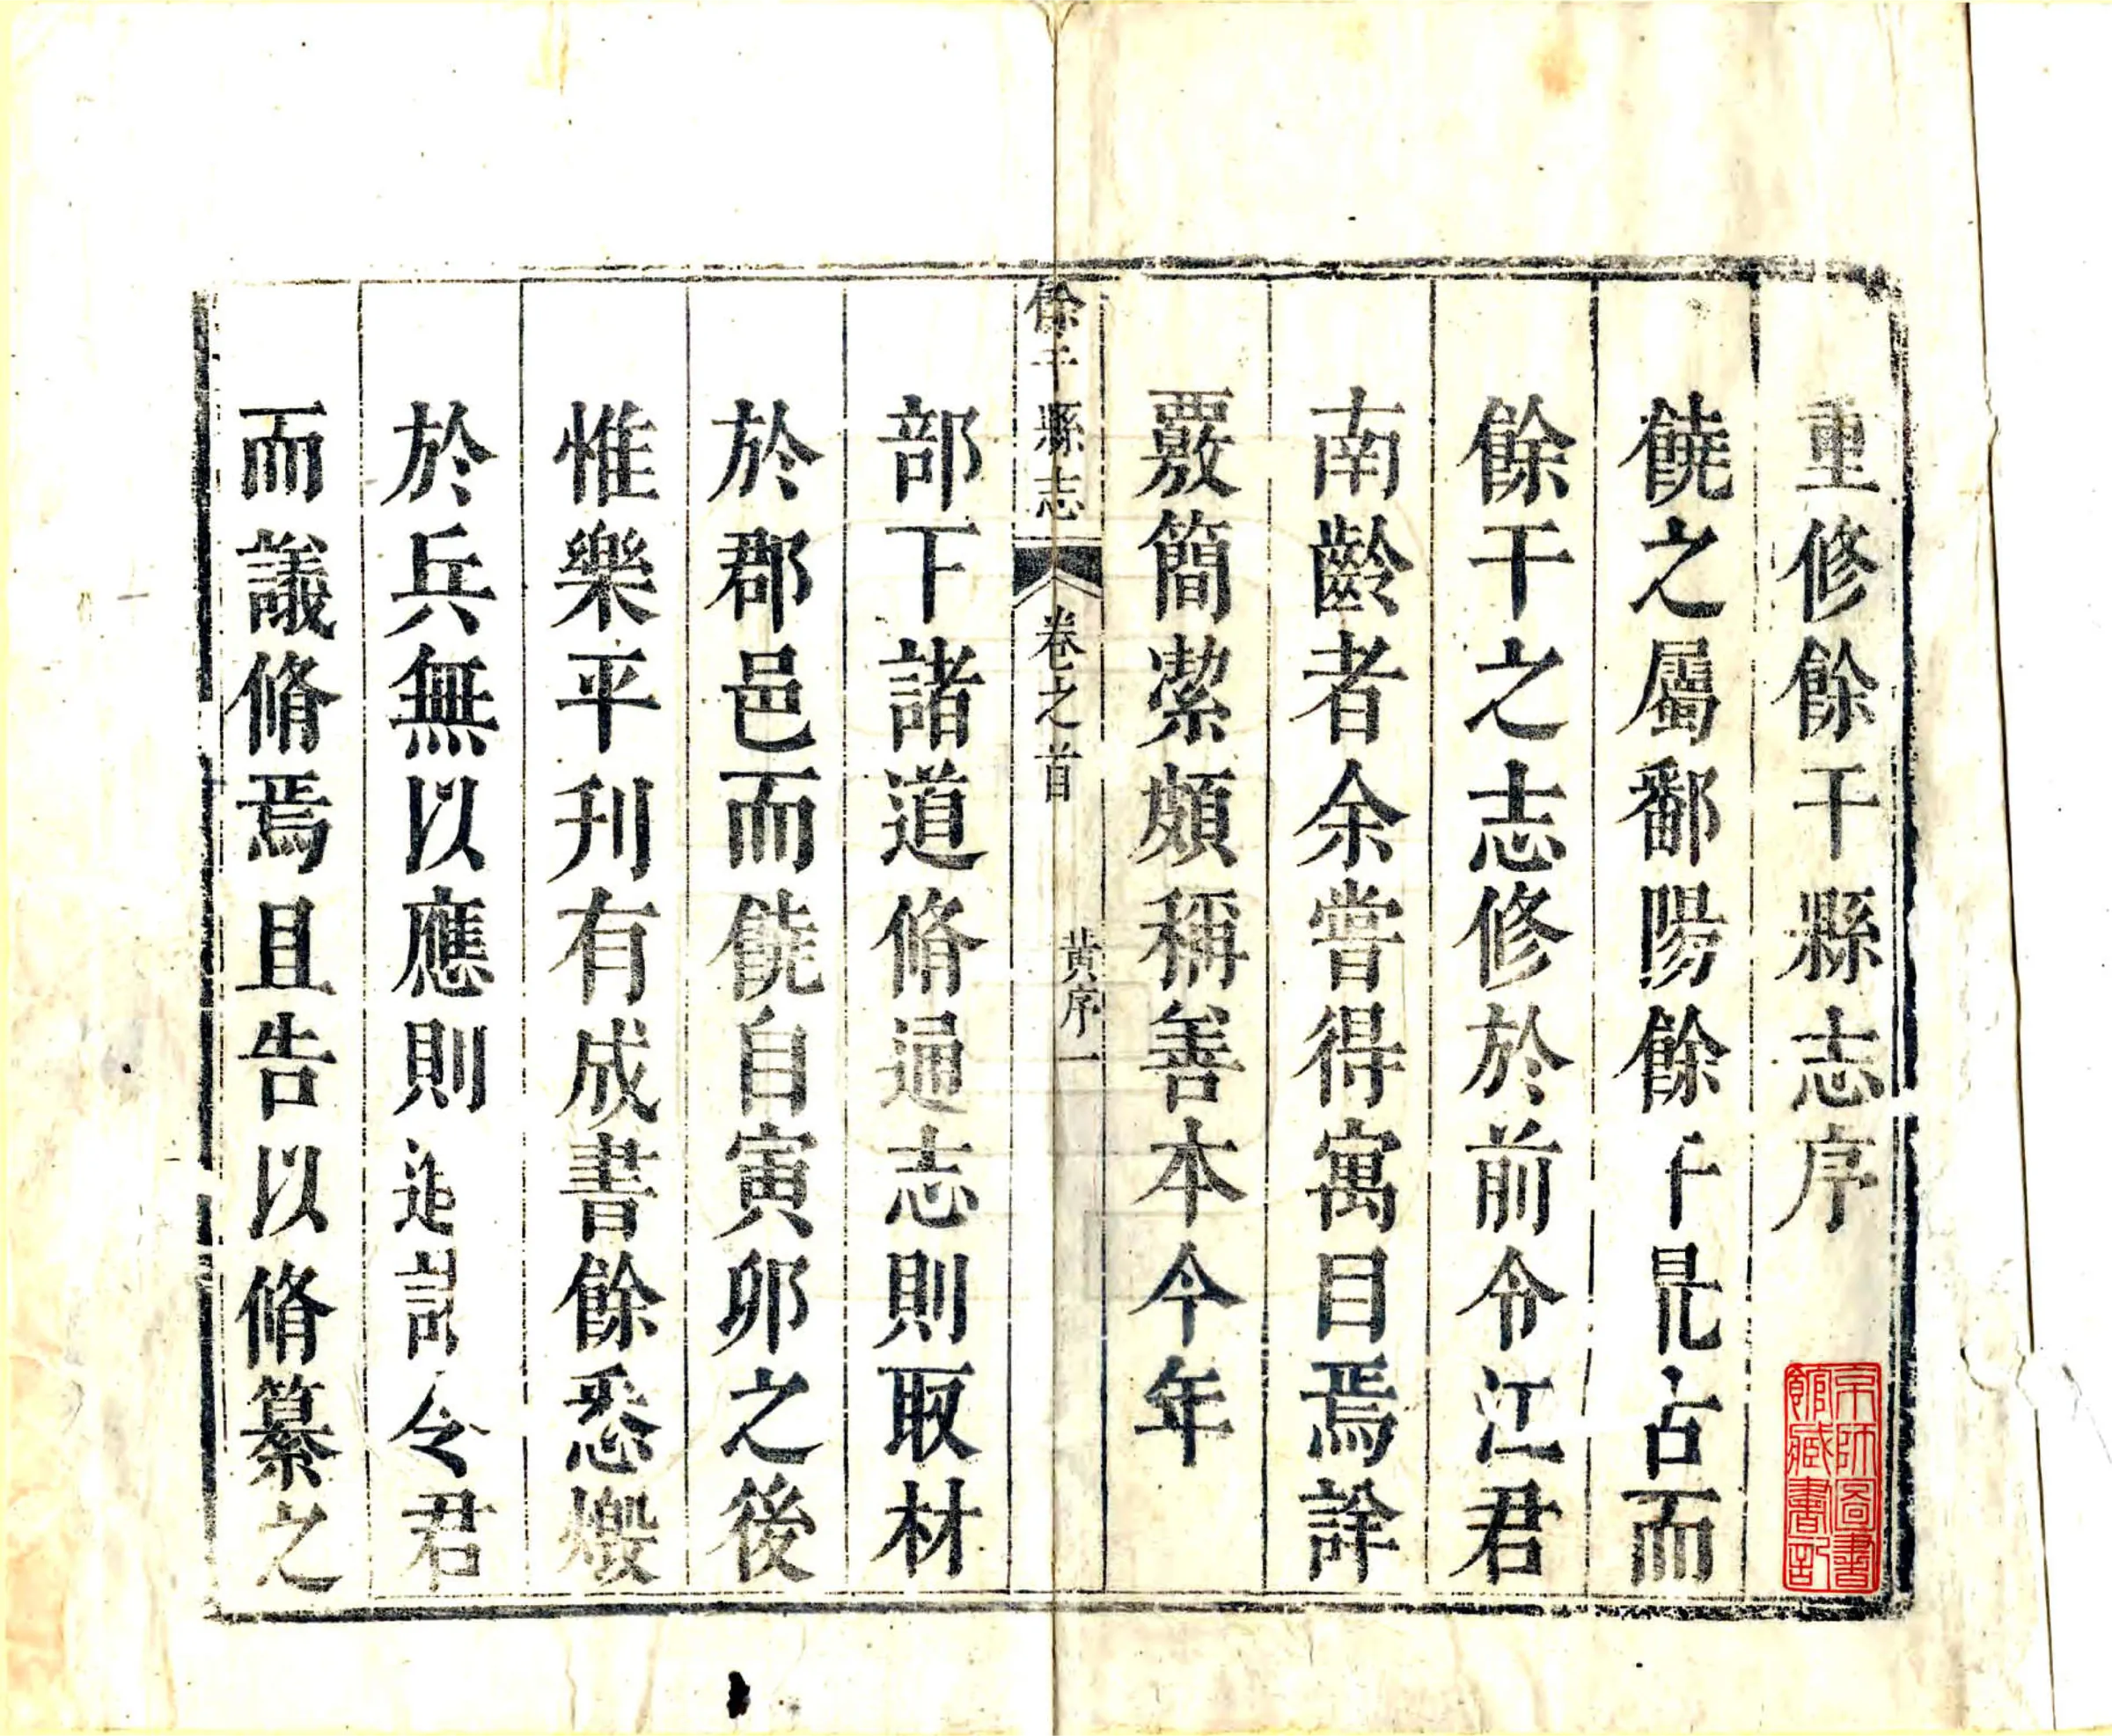 重修餘干縣志序
饒之屬鄱陽餘干最古而
餘干之志修於前令江君
南齡者余嘗得寓目焉詳
覈簡絜頗稱善本今年
餘干縣志 卷之首 黃序 一
部下諸道脩通志則取材
於郡邑而饒自寅卯之後
惟樂平刋有成書餘悉燬
於兵無以應則令君
而議脩焉且告以脩纂之
京師圖書
館藏書記